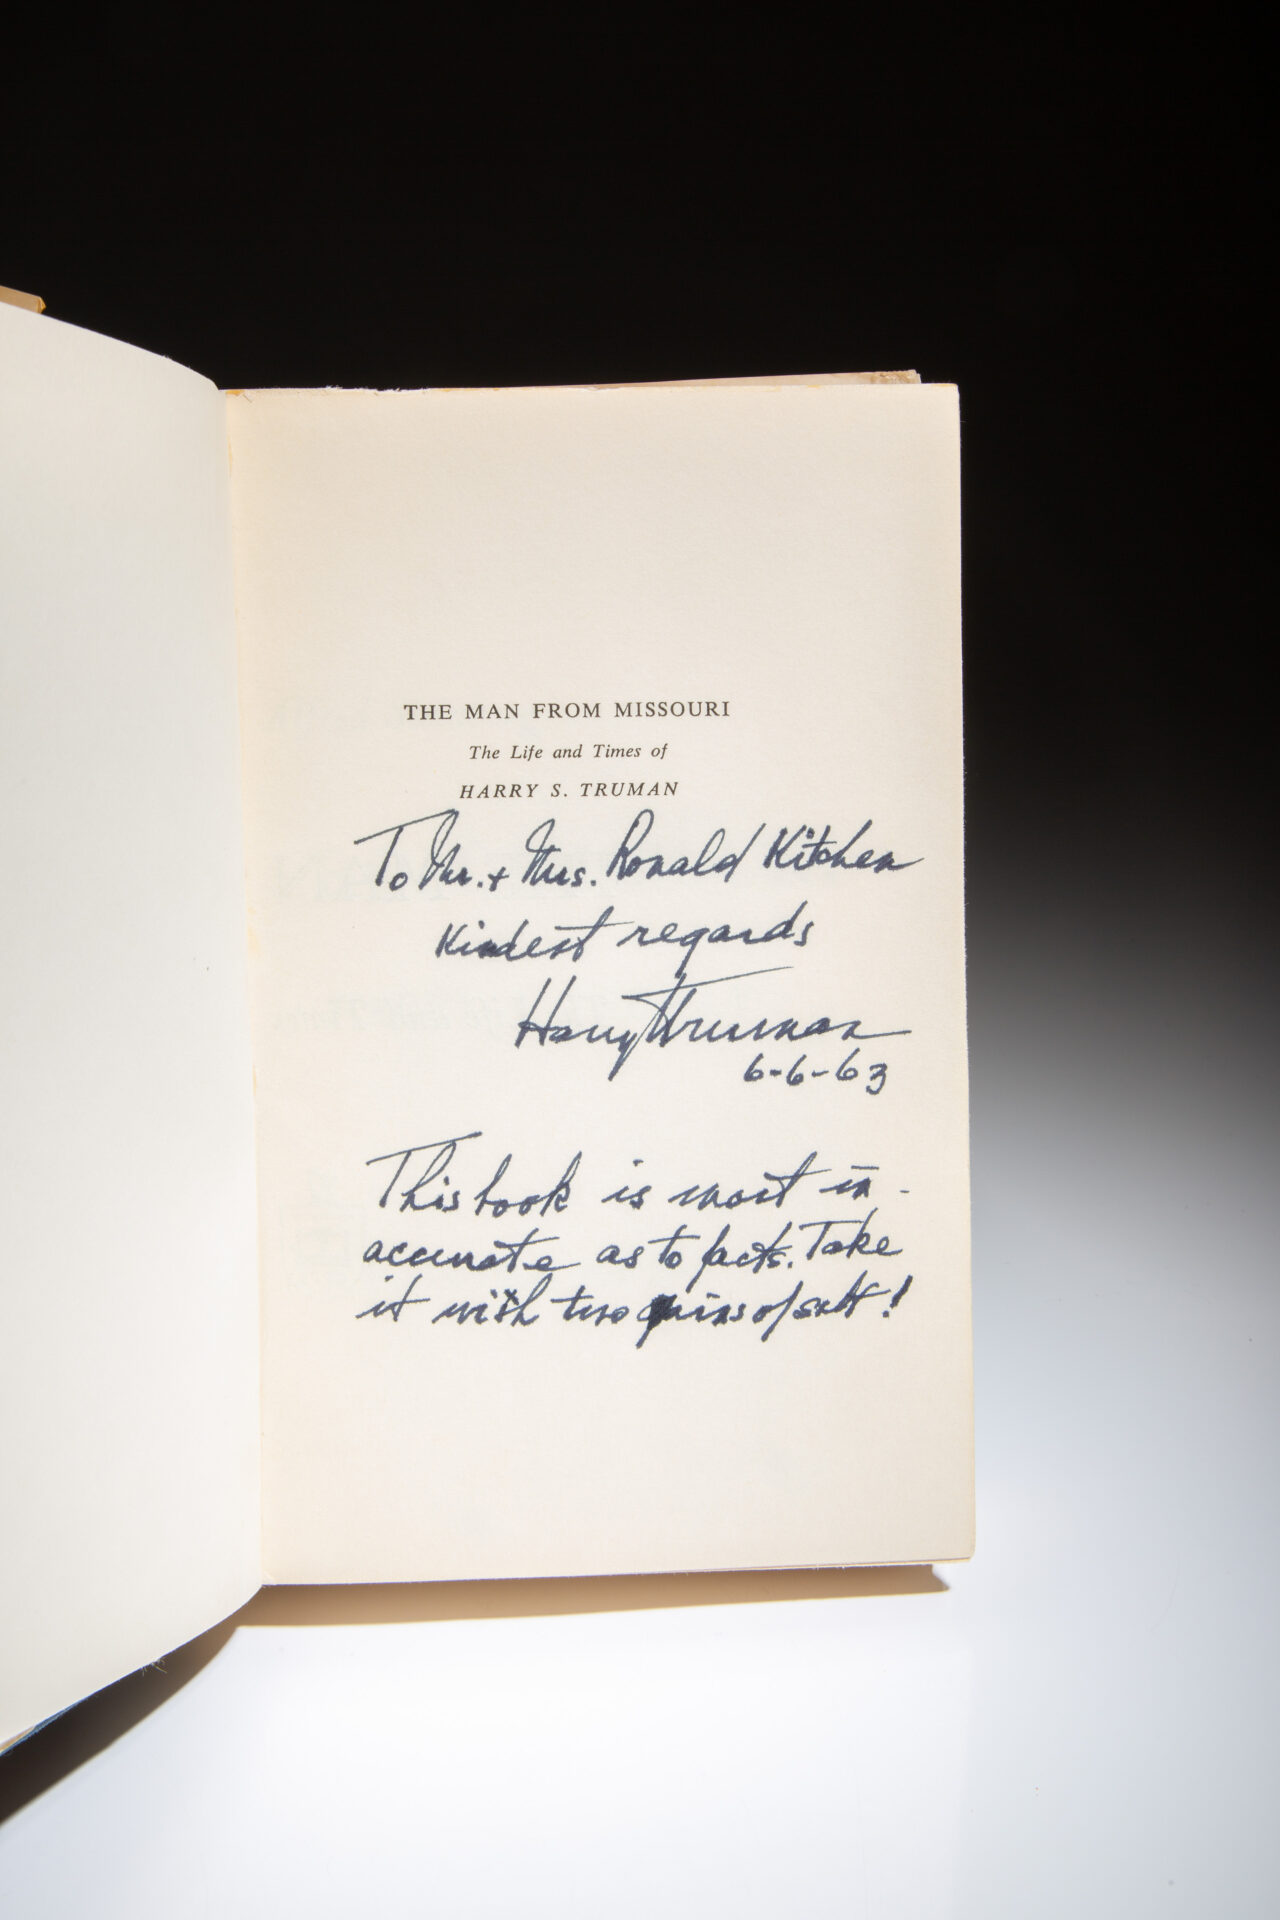 THE MAN FROM MISSOURI
The Life and Times of
HARRY S. TRUMAN
To Mr. + Mrs. Ronald Kitchen
Kindest regards
Harry S Truman
6-6-63
This book is most in-
accurate as to facts. Take
it with two grains of salt!